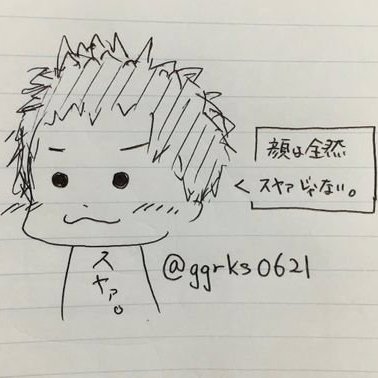 顔は全然
スヤァじゃない。
スヤァ。
@ggrks0621